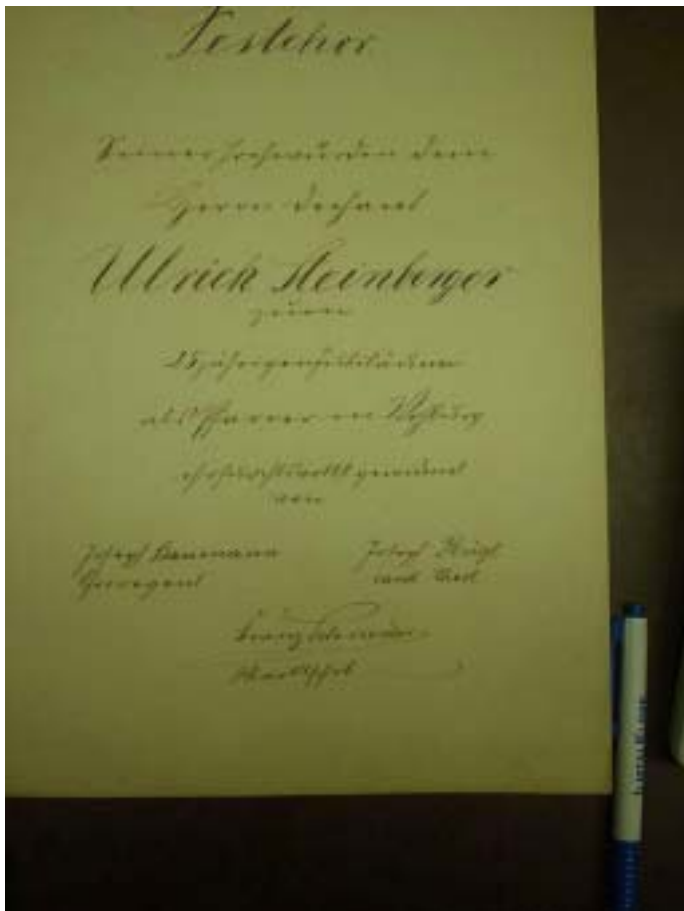 Festchor
Seiner Hochwürden dem
Herrn Dechant
Ulrich Steinberger
zum
25jährigen Jubiläum
als Pfarrer in Vohburg
ehrfurchtsvollst gewidmet
von
Joseph Baumann
Chorregent
Joseph Hügl
Franz